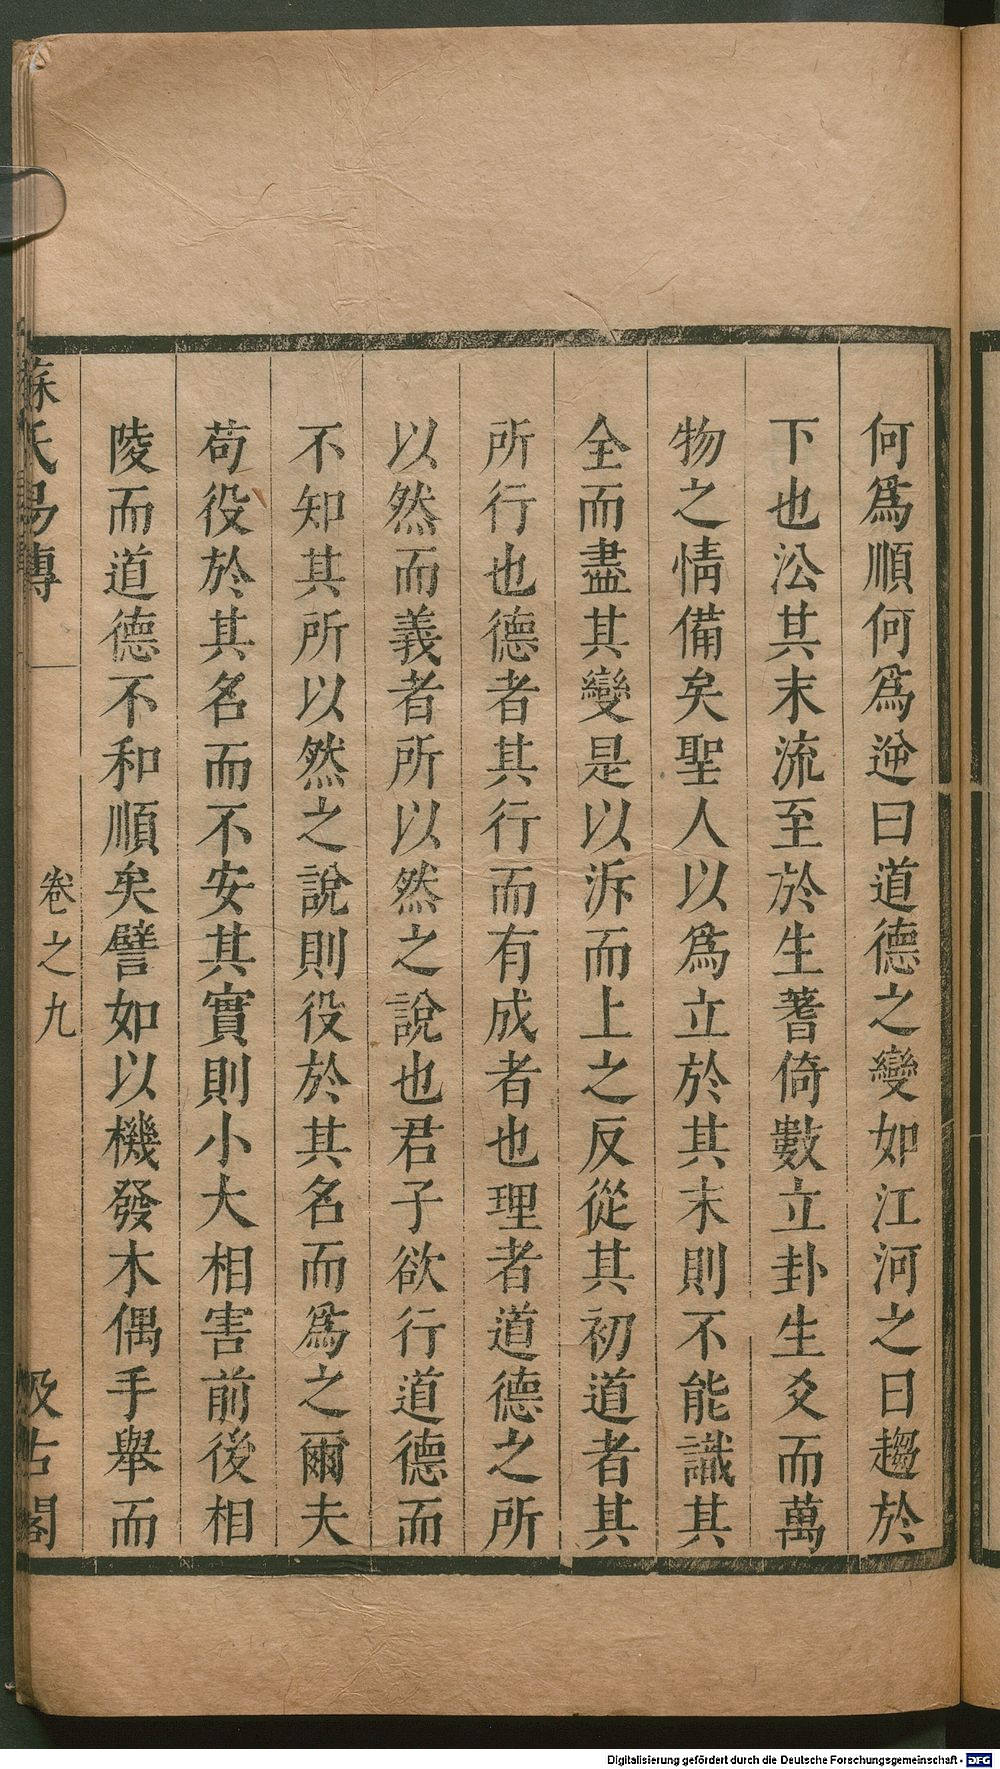 何爲順何爲逆曰道德之變如江河之日趨於
下也㳂其末流至於生蓍倚數立卦生爻而萬
物之情備矣聖人以爲立於其末則不能識其
全而盡其變是以泝而上之反從其初道者其
所行也德者其行而有成者也理者道德之所
以然而義者所以然之說也君子欲行道德而
不知其所以然之說則役於其名而爲之爾夫
苟役於其名而不安其實則小大相害前後相
陵而道德不和順矣譬如以機發木偶手舉而
蘇氏易傳 卷之九 汲古閣
Digitalisierung gefördert durch die Deutsche Forschungsgemeinschaft - DFG